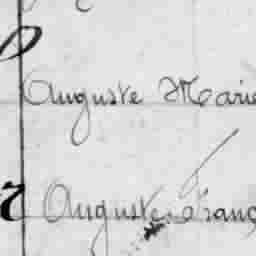 Auguste Marie
Auguste Franç